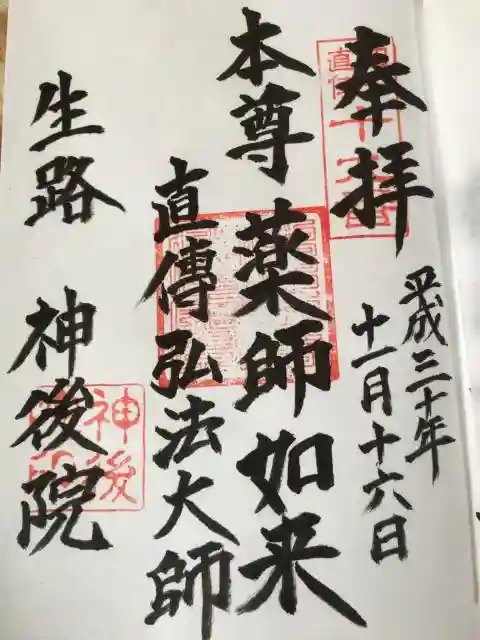 奉拝
平成三十年
十一月十六日
本尊 薬師如来
直傳弘法大師
生路 神後院
神後